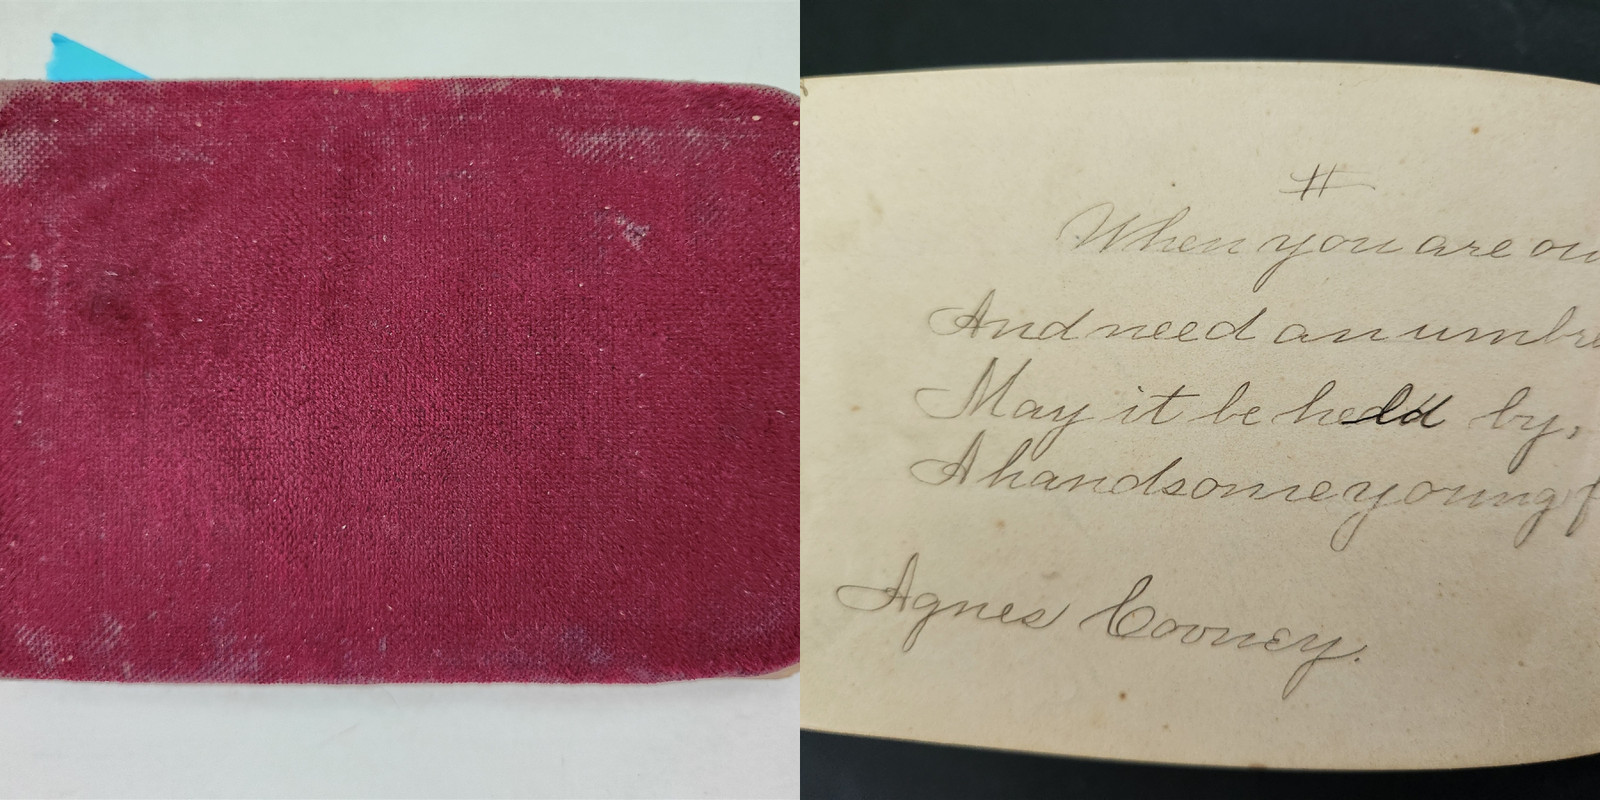 #
When you are ou
And need an umbre
May it be held by,
A handsome young f
Agnes Cooney.